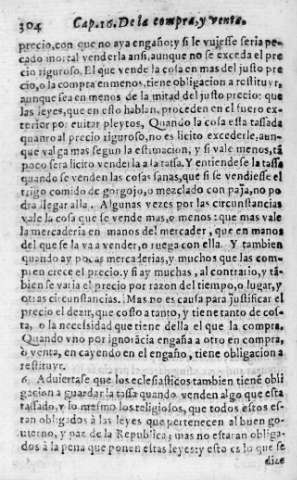 304 Cap. 16. De la compra, y venta.
precio, con que no aya engaño: y si le vuiesse seria pe-
cado mortal venderla ansi, aunque no se exceda el pre
cio riguroso. El que vende la cosa en mas del justo pre
cio, o la compra en menos, tiene obligacion a restituyr,
aunque sea en menos de la mitad del justo precio: que
las leyes, que en esto hablan, proceden en el fuero ex-
terior por euitar pleytos. Quando la cosa esta tassada
quanto al precio riguroso, no es licito excederle, aun-
que valga mas segun la estimacion, y si vale menos, tã
poco sera licito venderla a la tassa. Y entiendese la tassa
quando se venden las cosas sanas, que si se vendiesse el
trigo comido de gorgojo, o mezclado con paja, no po
dra llegar alla. Algunas vezes por las circunstancias
vale la cosa que se vende mas, o menos: que mas vale
la mercaderia en manos del mercader, que en manos
del que se la va a vender, o ruega con ella. Y tambien
quando ay pocas mercaderias, y muchos que las com-
pren crece el precio. y si ay muchas, al contrario, y tã-
bien se varia el precio por razon del tiempo, o lugar, y
otras circunstancias. Mas no es causa para justificar el
precio el dezir, que costo a tanto, y tiene tanto de cos-
ta, o la necessidad que tiene della el que la compra.
Quando vno por ignorãcia engaña a otro en compra,
o venta, en cayendo en el engaño, tiene obligacion a
restituyr.
6. Aduiertase que los eclesiasticos tambien tienẽ obli
gacion a guardar la tassa quando venden algo que esta
tassado, y lo mesmo los religiosos, que todos estos es-
tan obligados à las leyes que pertenecen al buen go-
uierno, y paz de la Republica; mas no estaran obliga-
dos à la pena que ponen estas leyes: y esto es lo que se
dize